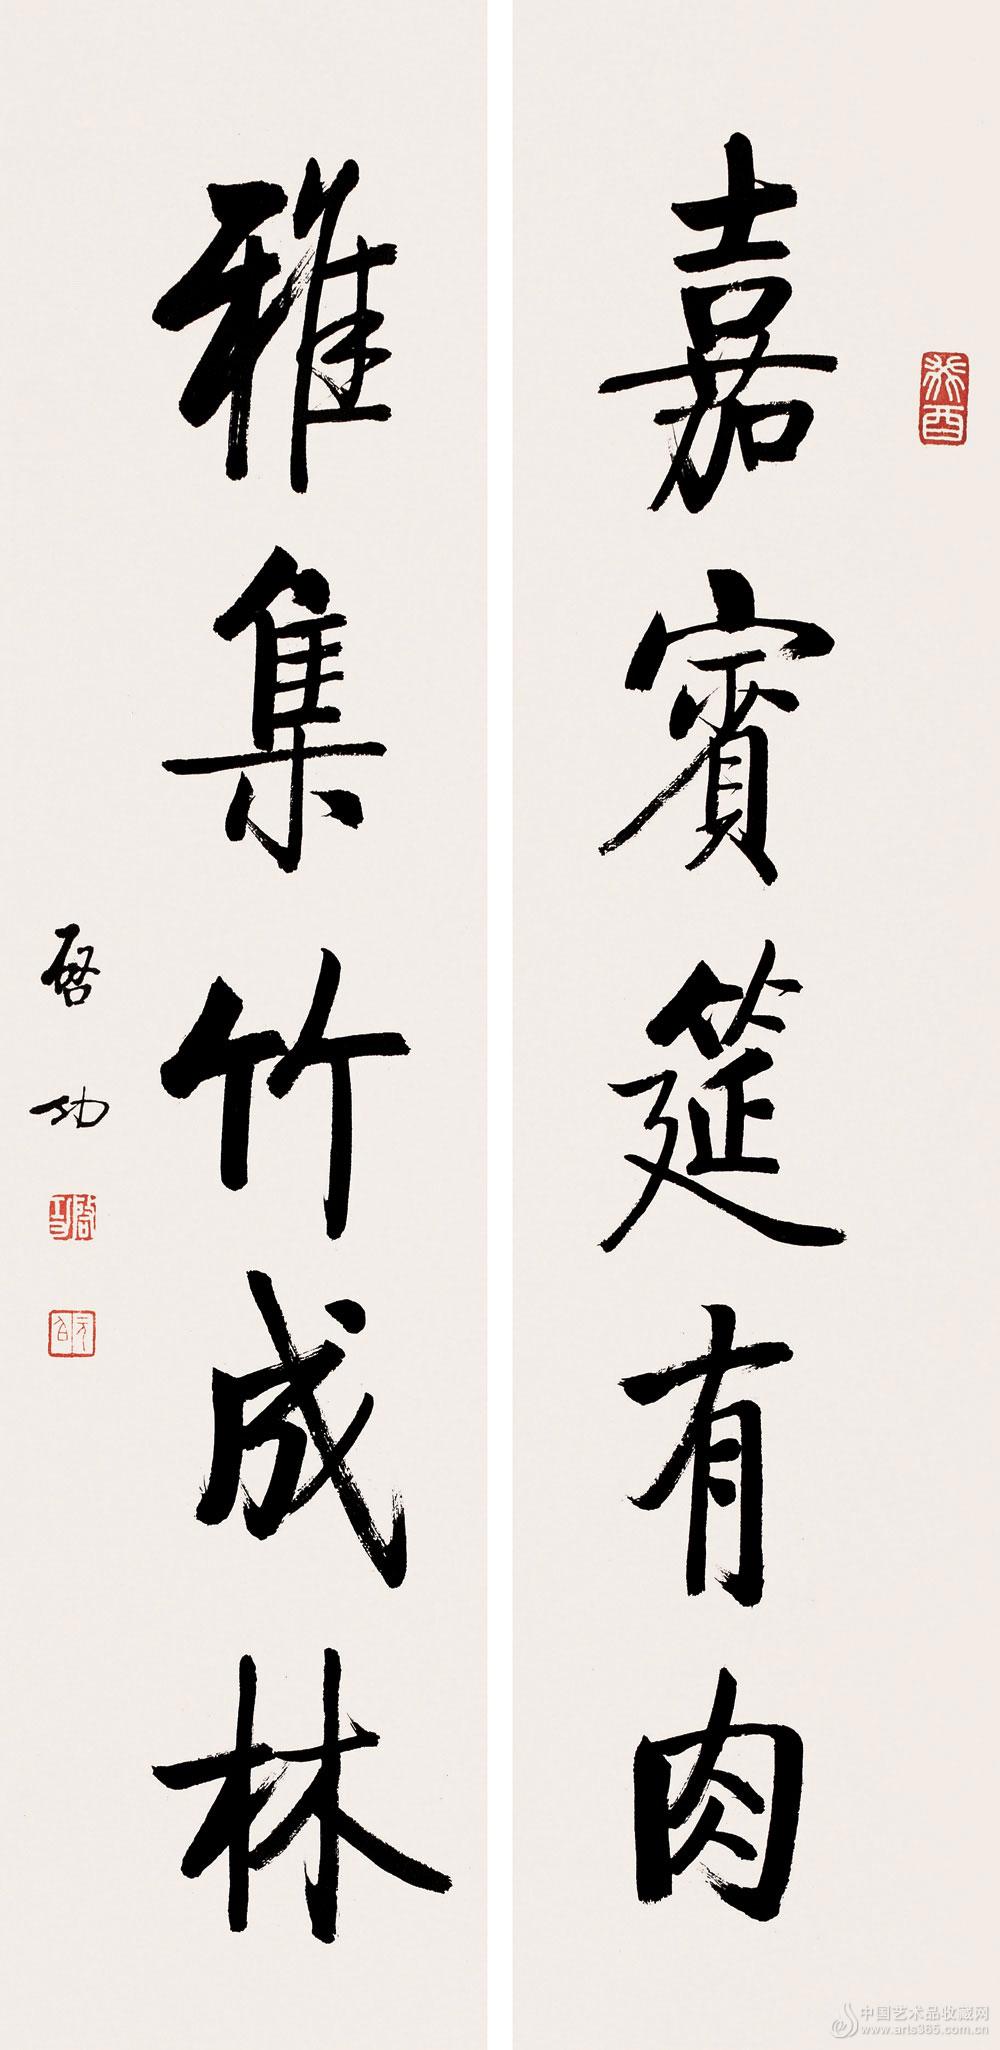 嘉賓筵有肉
癸酉
雅集竹成林
啓功
啓功
元白
中国艺术品收藏网
www.arts365.com.cn